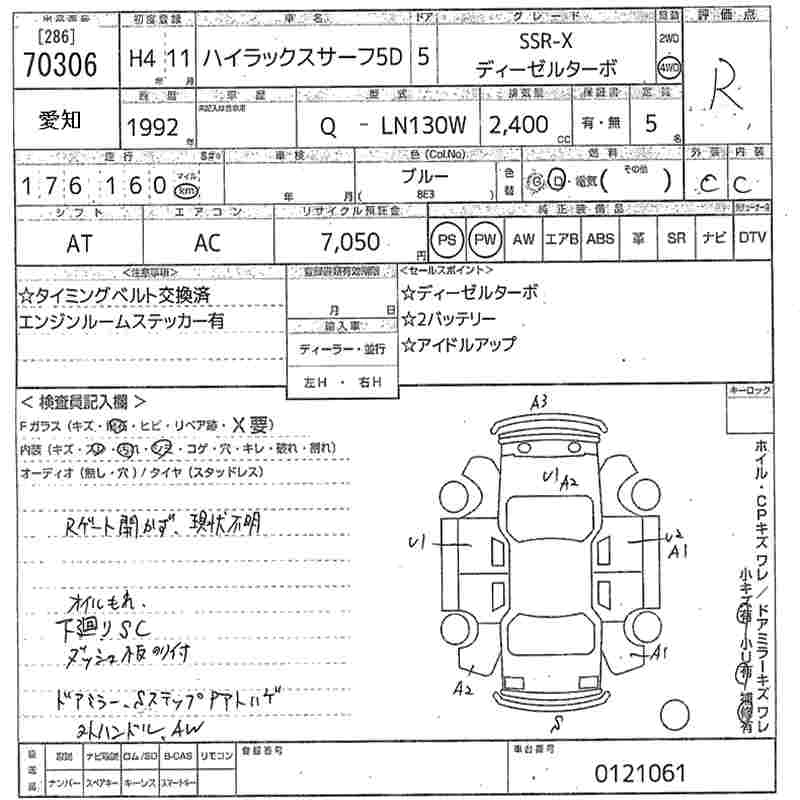 [286]
初度登録 車名 ドア グレード 評価点
70306 H4 年 11 月 ハイラックスサーフ5D 5 SSR-X ディーゼルターボ 2WD 4WD R
愛知 1992 年 Q - LN130W 2,400 CC 有・無 5 名
車歴 型式 排気量 保証書 定員
走行 車検 色(Col.No) 燃料 外装 内装
176160 マイル km 年 月 ブルー 8E3 色替 G・D・電気( その他 ) C C
シフト エアコン リサイクル預託金 純正装備品
AT AC 7,050 円 PS PW AW エアB ABS 革 SR ナビ DTV
<注意事項> <セールスポイント>
☆タイミングベルト交換済
エンジンルームステッカー有
月 日
輸入車
ディーラー・並行
左H ・ 右H
☆ディーゼルターボ
☆2バッテリー
☆アイドルアップ
キーロック
<検査員記入欄>
Fガラス(キズ・飛石・ヒビ・リペア跡・X要)
内装(キズ・スレ・汚れ・シミ・コゲ・穴・キレ・破れ・割れ)
オーディオ(無し・穴)/タイヤ(スタッドレス)
Rゲート開かず、現状不明
オイルもれ.
下廻りSC
ダッシュ板のり付
ドアミラー、Sステップ Pアトハゲ
ストハンドル、AW
A3
U1 A2
U1
U2 A1
A2
A1
S
ホイル・CPキズワレ/ドアミラーキズワレ
小キズ有/小U有/補修有
ナビ取説 ロム/SD B-CAS リモコン
ナンバー スペアキー キーレス スマートキー
登録番号
車台番号
0121061